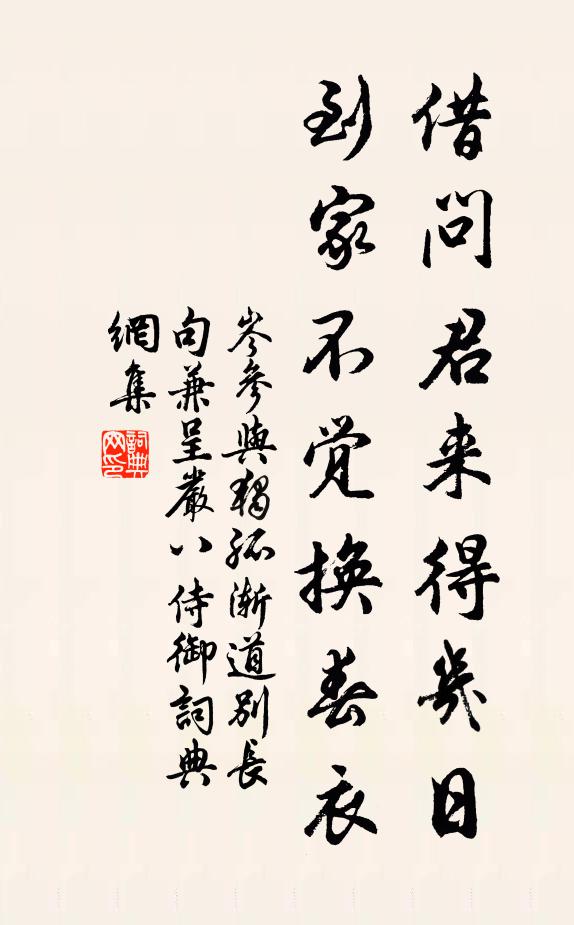 借问君来得几日
到家不觉换春衣
岑參與獨孤漸道別長
句兼呈嚴八侍御詞典
網集
詞典
网印